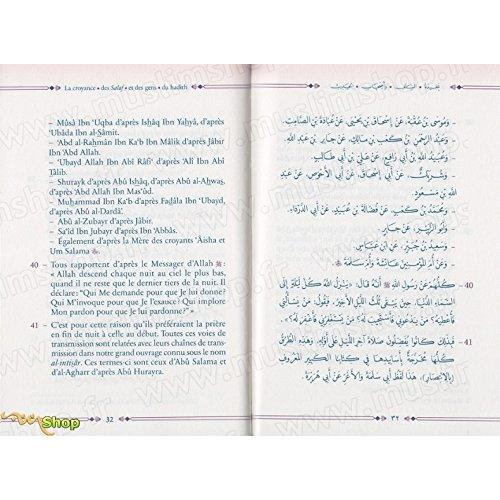 La croyance • des Salaf • et des gens • du hadith
– Mûsâ Ibn 'Uqba d'après Isḥâq Ibn Yaḥyâ, d'après
'Ubâda Ibn al-Ṣâmit.
– 'Abd al-Raḥmân Ibn Ka'b Ibn Mâlik d'après Jâbir
Ibn 'Abd Allah.
– 'Ubayd Allah Ibn Abî Râfi' d'après 'Alî Ibn Abî
Tâlib.
– Shurayk d'après Abû Isḥâq, d'après Abû al-Aḥwaṣ,
d'après 'Abd Allah Ibn Mas'ûd.
– Muḥammad Ibn Ka'b d'après Faḍâla Ibn 'Ubayd,
d'après Abû al-Dardâ'.
– Abû al-Zubayr d'après Jâbir.
– Sa'îd Ibn Jubayr d'après Ibn 'Abbâs.
– Également d'après la Mère des croyants 'Âisha et
Um Salama.
40 – Tous rapportent d'après le Messager d'Allah ﷺ :
« Allah descend chaque nuit au ciel le plus bas,
quand il ne reste que le dernier tiers de la nuit. Il
déclare : "Qui Me demande pour que Je lui donne ?
Qui M'invoque pour que Je l'exauce ? Qui implore
Mon pardon pour que Je lui pardonne ?" »
41 – C'est pour cette raison qu'ils préféraient la prière
en fin de nuit à celle au début. Toutes ces voies de
transmission sont relatées avec leurs chaînes de trans-
mission dans notre grand ouvrage connu sous le nom
al-intiṣâr. Ces termes-ci sont ceux d'Abû Salama et
d'al-Agharr d'après Abû Hurayra.
32
عقيدة السلف وأصحاب الحديث
– وَمُوسَى بْنِ عُقْبَةَ، عَنْ إِسْحَاقَ بْنِ يَحْيَى، عَنْ عُبَادَةَ بْنِ الصَّامِتِ.
– وَعَبْدِ الرَّحْمَنِ بْنِ كَعْبِ بْنِ مَالِكٍ، عَنْ جَابِرِ بْنِ عَبْدِ اللهِ.
– وَعُبَيْدِ اللهِ بْنِ أَبِي رَافِعٍ، عَنْ عَلِيِّ بْنِ أَبِي طَالِبٍ.
– وَشُرَيْكٍ، عَنْ أَبِي إِسْحَاقَ، عَنْ أَبِي الأَحْوَصِ، عَنْ عَبْدِ
اللهِ بْنِ مَسْعُودٍ.
– وَمُحَمَّدِ بْنِ كَعْبٍ، عَنْ فَضَالَةَ بْنِ عُبَيْدٍ، عَنْ أَبِي الدَّرْدَاءِ.
– وَأَبُو الزُّبَيْرِ، عَنْ جَابِرٍ.
– وَسَعِيدِ بْنِ جُبَيْرٍ، عَنِ ابْنِ عَبَّاسٍ.
– وَعَنْ أُمِّ الْمُؤْمِنِينَ عَائِشَةَ، وَأُمِّ سَلَمَةَ
40 – كُلُّهُمْ عَنْ رَسُولِ اللهِ ﷺ أَنَّهُ قَالَ: يَنْزِلُ اللهُ كُلَّ لَيْلَةٍ إِلَى
السَّمَاءِ الدُّنْيَا، حِينَ يَبْقَى ثُلُثُ اللَّيْلِ الآخِرُ، فَيَقُولُ: مَنْ يَسْأَلُنِي
فَأُعْطِيَهُ؟ مَنْ يَدْعُونِي فَأَسْتَجِيبَ لَهُ؟ مَنْ يَسْتَغْفِرُنِي فَأَغْفِرَ لَهُ؟.
41 – فَلِذَلِكَ كَانُوا يُفَضِّلُونَ صَلَاةَ آخِرِ اللَّيْلِ عَلَى أَوَّلِهِ، وَهَذِهِ الطُّرُقُ
كُلُّهَا مُخَرَّجَةٌ بِأَسَانِيدِهَا فِي كِتَابِنَا الكَبِيرِ المَعْرُوفِ
(بِالِانْتِصَارِ)، هَذَا لَفْظُ أَبِي سَلَمَةَ وَالأَغَرِّ عَنْ أَبِي هُرَيْرَةَ.
٣٢
Shop